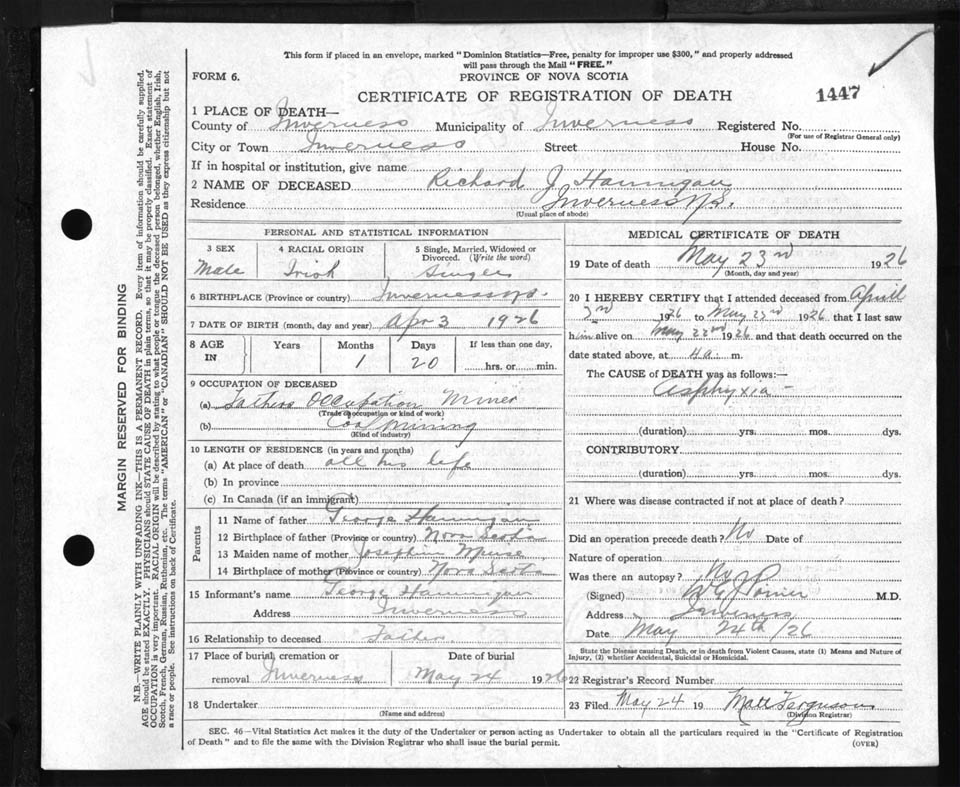 This form if placed in an envelope, marked "Dominion Statistics—Free, penalty for improper use $300," and properly addressed
will pass through the Mail "FREE."
FORM 6.
PROVINCE OF NOVA SCOTIA
CERTIFICATE OF REGISTRATION OF DEATH
1447
1 PLACE OF DEATH—
County of Inverness Municipality of Inverness Registered No.
(For use of Registrar General only)
City or Town Inverness Street House No.
If in hospital or institution, give name
2 NAME OF DECEASED Richard J Hannigan
Residence Inverness N.S.
(Usual place of abode)
PERSONAL AND STATISTICAL INFORMATION
3 SEX 4 RACIAL ORIGIN 5 Single, Married, Widowed or
Divorced. (Write the word)
Male Irish Single
6 BIRTHPLACE (Province or country) Inverness N.S.
7 DATE OF BIRTH (month, day and year) Apr 3 1926
8 AGE IN Years Months Days If less than one day,
1 20 hrs. or min.
9 OCCUPATION OF DECEASED
(a) Fathers Occupation Miner
(Trade or occupation or kind of work)
(b) Coal Mining
(Kind of industry)
10 LENGTH OF RESIDENCE (in years and months)
(a) At place of death all his life
(b) In province
(c) In Canada (if an immigrant)
Parents
11 Name of father George Hannigan
12 Birthplace of father (Province or country) Nova Scotia
13 Maiden name of mother Josephine Muise
14 Birthplace of mother (Province or country) Nova Scotia
15 Informant's name George Hannigan
Address Inverness
16 Relationship to deceased Father
17 Place of burial, cremation or Date of burial
removal Inverness May 24 1926
18 Undertaker
(Name and address)
MEDICAL CERTIFICATE OF DEATH
19 Date of death May 23rd 1926
(Month, day and year)
20 I HEREBY CERTIFY that I attended deceased from April
3rd 1926 to May 23rd 1926 that I last saw
him alive on May 22nd 1926 and that death occurred on the
date stated above, at 4 a. m.
The CAUSE OF DEATH was as follows:—
Asphyxia
(duration) yrs. mos. dys.
CONTRIBUTORY
(duration) yrs. mos. dys.
21 Where was disease contracted if not at place of death?
Did an operation precede death? No Date of
Nature of operation
Was there an autopsy? No
(Signed) M.D.
Address Inverness
Date May 24th/26
State the Disease causing Death, or in death from Violent Causes, state (1) Means and Nature of
Injury, (2) whether Accidental, Suicidal or Homicidal.
22 Registrar's Record Number
23 Filed May 24 19 Matt Ferguson
(Division Registrar)
SEC. 46—Vital Statistics Act makes it the duty of the Undertaker or person acting as Undertaker to obtain all the particulars required in the "Certificate of Registration
of Death" and to file the same with the Division Registrar who shall issue the burial permit. (OVER)
MARGIN RESERVED FOR BINDING
N.B.—WRITE PLAINLY WITH UNFADING INK—THIS IS A PERMANENT RECORD. Every item of information should be carefully supplied.
AGE should be stated EXACTLY. PHYSICIANS should STATE CAUSE OF DEATH in plain terms, so that it may be properly classified. Exact statement of
OCCUPATION is very important. RACIAL ORIGIN will be described by stating to what people or tongue the deceased person belonged, whether English, Irish,
Scotch, French, German, Russian, Ruthenian, etc. The terms "AMERICAN" or "CANADIAN" SHOULD NOT BE USED as they express citizenship but not
a race or people. See instructions on back of Certificate.